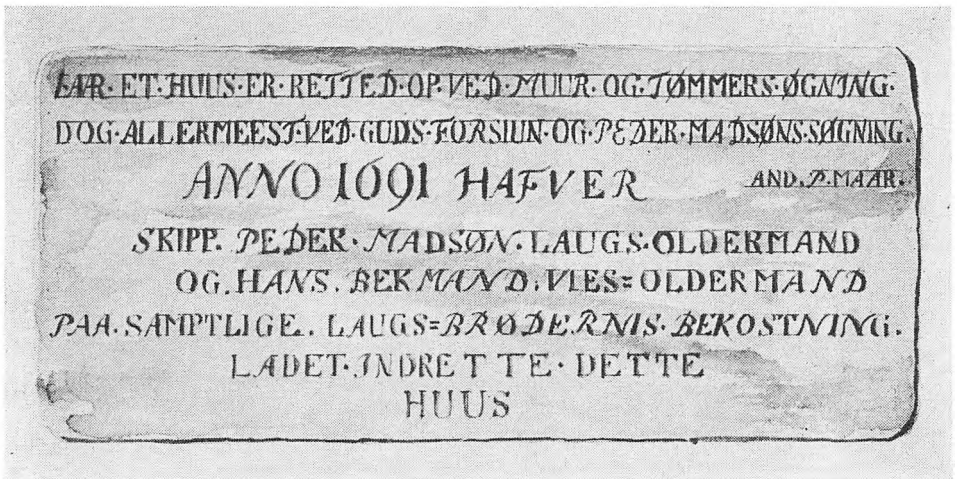 LAR·ET·HUUS·ER·RETTED·OP·VED·MUUR·OG·TØMMERS·ØGNING·
DOG·ALLERMEEST·VED·GUDS·FORSIUN·OG·PEDER·MADSØNS·SØGNING.
ANNO 1691 HAFVER AND.P.MAAR.
SKIPP. PEDER·MADSØN·LAUGS·OLDERMAND
OG.HANS.BEKMAND.VIES=OLDERMAND
PAA.SAMPTLIGE. LAUGS=BRØDERNIS.BEKOSTNING.
LADET·INDRETTE·DETTE
HUUS